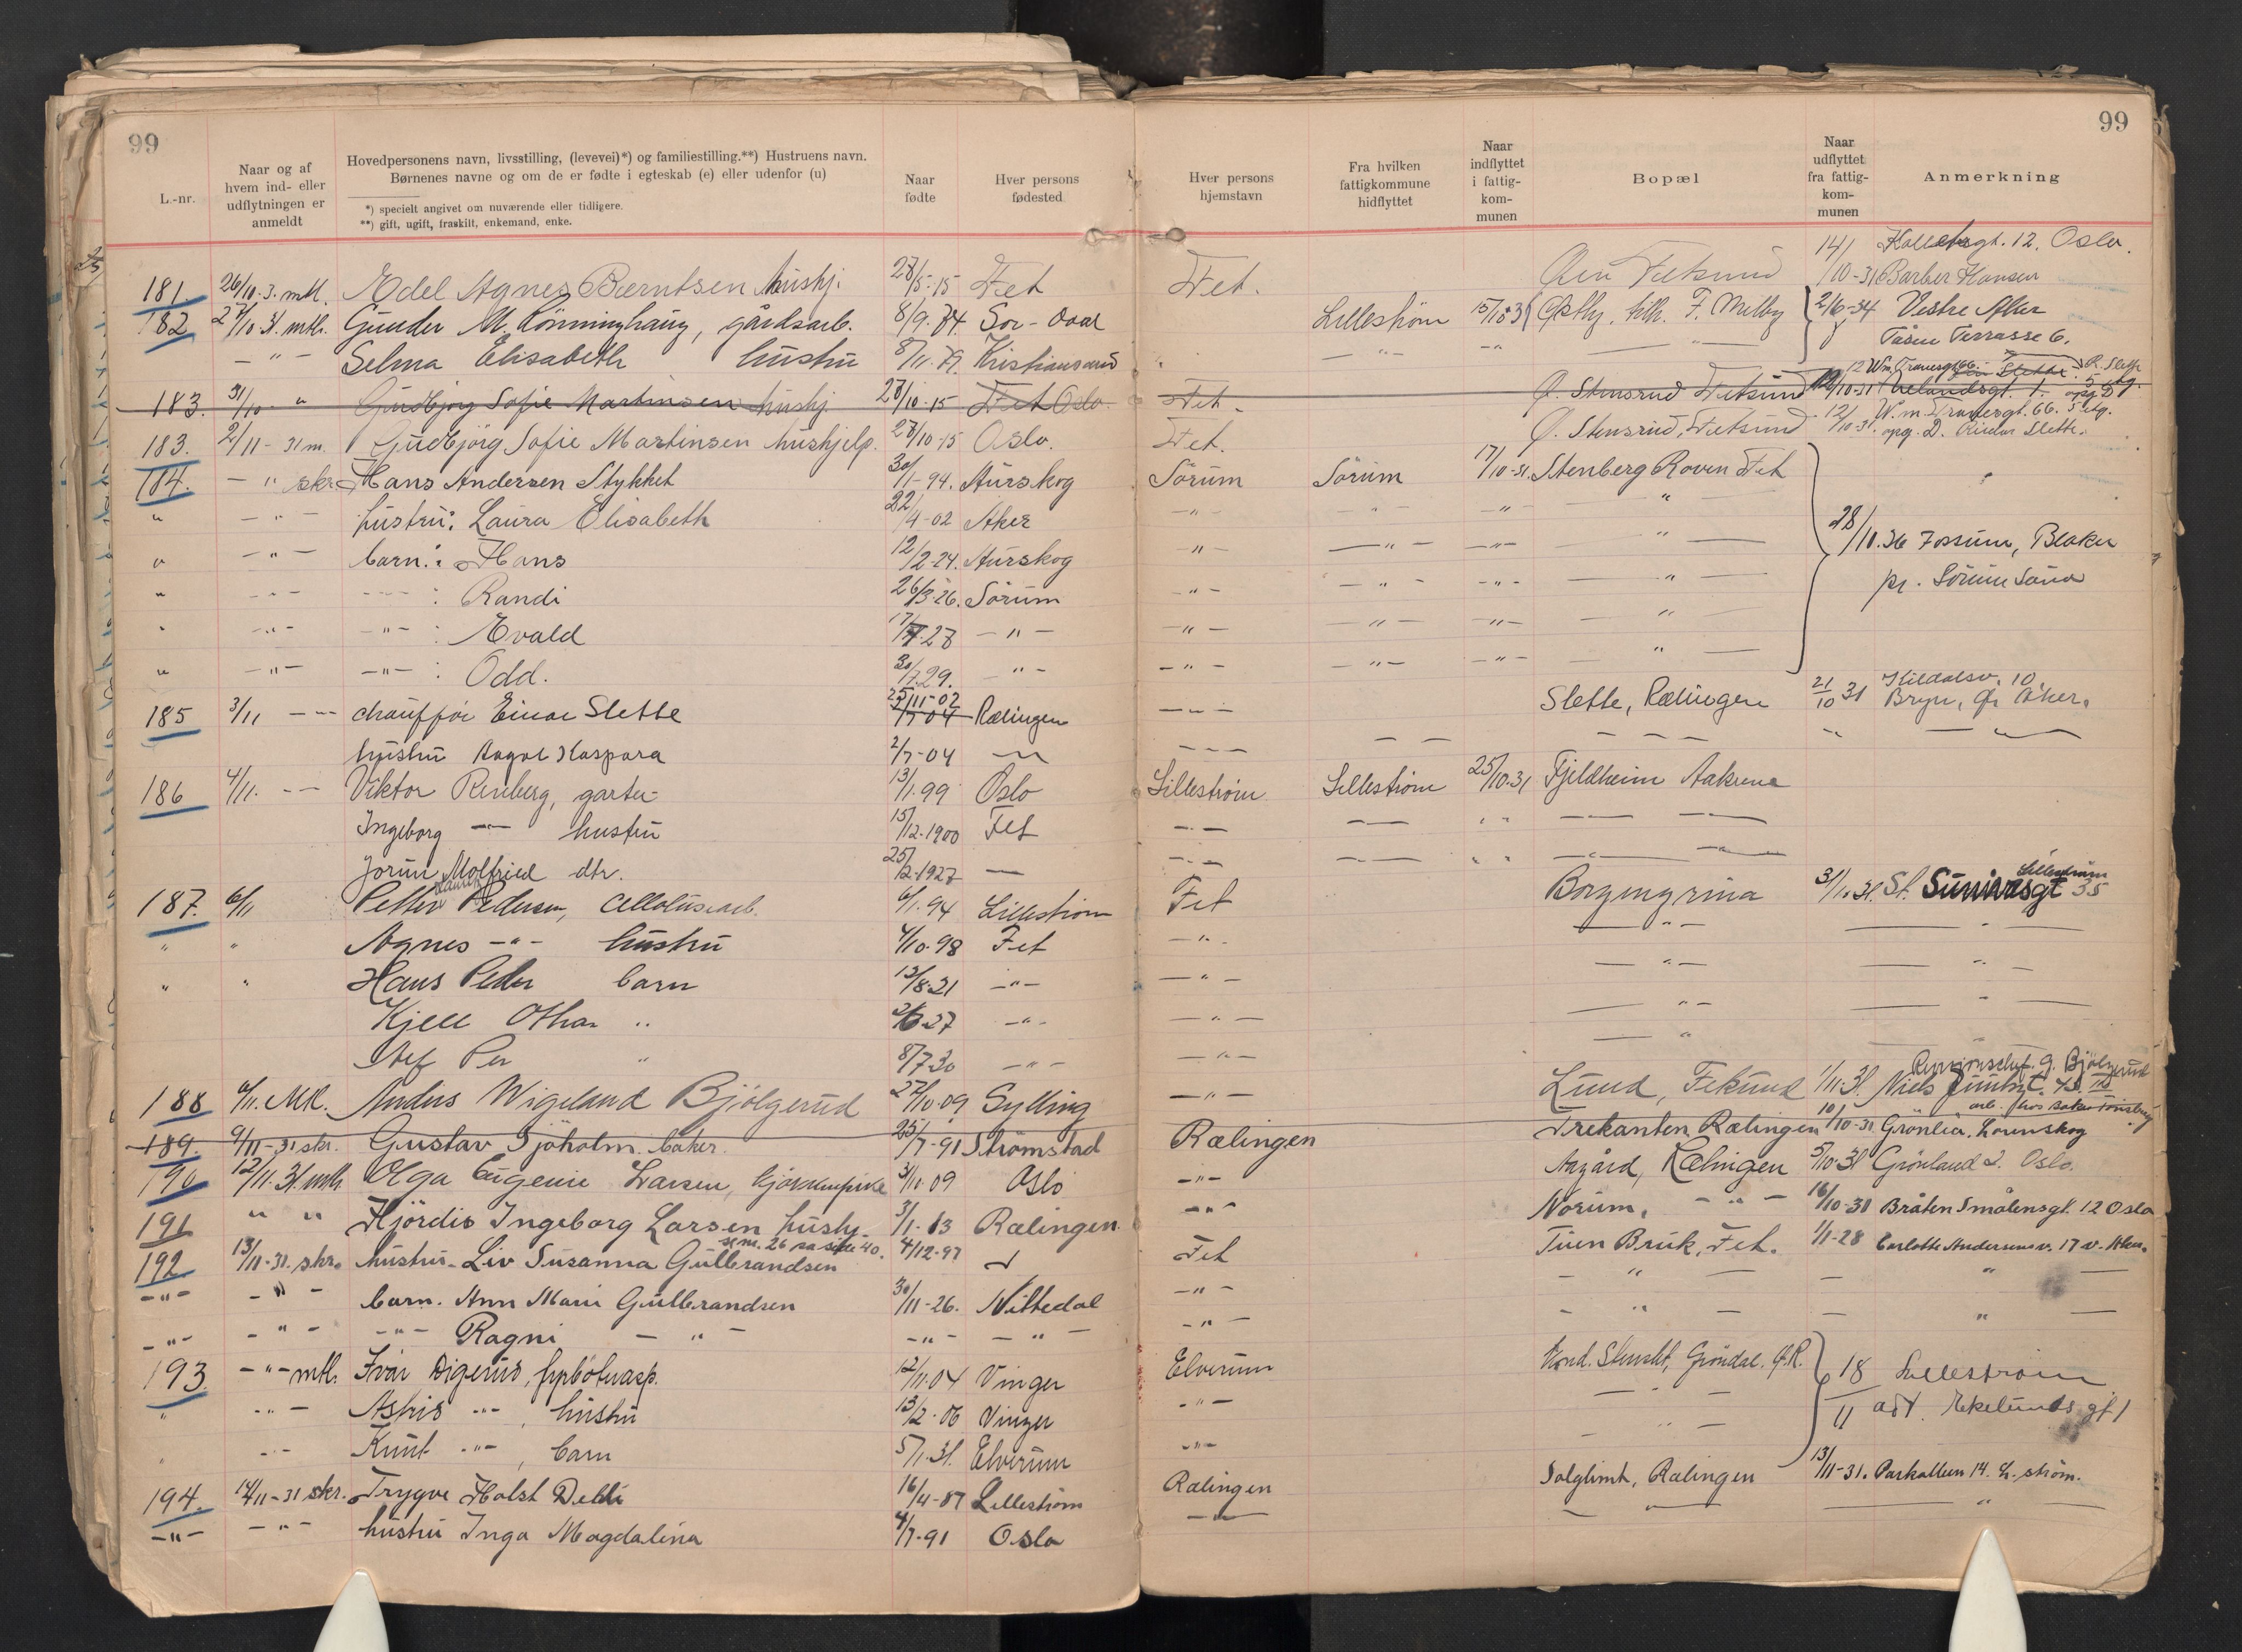 99
99
L.-nr.
Naar og af hvem ind- eller udflytningen er anmeldt
Hovedpersonens navn, livsstilling, (levevei)*) og familiestilling.**) Hustruens navn.
Børnenes navne og om de er fødte i egteskab (e) eller udenfor (u)
*) specielt angivet om nuværende eller tidligere.
**) gift, ugift, fraskilt, enkemand, enke.
Naar fødte
Hver persons fødested
Hver persons hjemstavn
Fra hvilken fattigkommune hidflyttet
Naar indflyttet i fattigkommunen
Bopæl
Naar udflyttet fra fattigkommunen
Anmerkning
181 26/10-3. mtl. Edel Agnes Berntsen hushj. 28/5-15 Fet Fet. Fetsund 14/10-31 12. Oslo.
Barber Hansen
182 27/10 31. mtl. Gunder M. Rönninghaug, gårdsarb. 8/9.74. Sor-Odal Lilleström 15/10 31 Østby, tilh. F. Melby 2/6-34 Vestre Aker
Tåsen Terrasse 6.
- " - Selma Elisabeth hustru 8/11.79. Kristiansand - " - - " -
183. 31/10 " Gudbjørg Sofie Martinsen hushj. 28/10-15 Fet Oslo. Fet. Ø. Stensrud Fetsund
183. 2/11-31 m. Gudbjörg Sofie Martinsen hushjelp. 28/10-15 Oslo. Fet. Ø. Stensrud, Fetsund 12/10-31. W.m. Tranesgt. 66. 5 etg.
opg. D. Slette.
184. - " skr. Hans Andersen Stykket 30/1-94. Aurskog Sörum Sörum 17/10-31. Stenberg Roven Fet
" - " - hustru: Laura Elisabeth 22/4-02 Aker - " - - " - - " - "
" - " - barn: Hans 12/2-24. Aurskog " - - " - - " - " 28/10.36 Fossum, Blaker
" - " - - " - : Randi 26/3-26. Sörum - " - - " - - " - " pr. Sörumsand
" - " - - " - : Evald 17/7 28 - " - - " - - " - - " - "
" - " - - " - : Odd. 30/7.29. - " - - " - - " - - " - "
185 3/11 - - chauffør Einar Slette 25/11-02 Rælingen - " - Slette, Rælingen 21/10 31 Hildalsv. 10
Bryn, Ø. Aker.
hustru Aagot Kaspara 2/7-04 - " -
186 4/11. - - Viktor Renberg, gartner 13/1.99 Oslo Lilleström Lilleström 25/10.31 Fjeldheim Aakrene
Ingeborg - " - hustru 15/12.1900 Fet
Jorun Molfried dtr. 25/2.1927 -
187. 6/11 Petter Laurits Pedersen, cellulosearb. 6/1.94 Lilleström Fet Borgengrina 31/10.31. St. Sunivasgt 35 Lilleström
" " Agnes - " - hustru 4/10.98 Fet - " - - " - - " -
" " Hans Peder barn 13/8-21 - " - - " - - " - - " -
Kjell Othar " 27 - " - - " - - " - - " -
Per " 8/7 30 - " - - " - "
188 6/11. Mtl. Anders Wigeland Bjölgerud 27/10 09 Sylling - " - Lund, Fetsund 1/11-31. G. Bjölgerud
189. 9/11-31 skr. Gustav Sjöholm. baker. 25/7-91 Strömstad Rælingen Trekanten Rælingen 10/10-31 Grönlia. Lorenskog
190 12/11. 31. mtl. Olga Eugenie Larsen, kjøkkenpike 3/11 09 Oslo - " - Aagård, Rælingen 5/10.31 Grönland 2. Oslo.
191 " " Hjördis Ingeborg Larsen hushj. 3/1-13 Rælingen. - " - Norum, - " - 16/10-31 Bråten Smålensgt. 12 Oslo
se nr. 26 på side 40.
192 13/11-31. skr. hustru Liv Susanna Gulbrandsen 4/12-97 Fet Tuen Bruk, Fet. 1/1-28 Carlotte Andersens v. 17 v. Aker.
- " - - " - barn. Ann Marie Gulbrandsen 30/11-26. Nittedal - " - - " - - " -
- " - - " - - " - Ragni - " - - " - - " - - " - - " - - " -
193 - " - mtl. Ivar Digerud, 12/11.04 Vinger Elverum Grøndal. Ø.R. 18/11 Lilleström
" - " - Astrid - " -, hustru 13/2-06 Vinger - " - - " - adr. Ekelunds gt 1
" - " - Knut - " -, barn 5/1.31. Elverum - " - - " -
194. 14/11-31 skr. Trygve Holst Dehli 16/4-87 Lilleström Rælingen Solglimt, Rælingen 13/11-31. Parkalleen 14. L.ström.
- " - - " - hustru Inga Magdalina 4/7-91 Oslo - " - - " - - " -